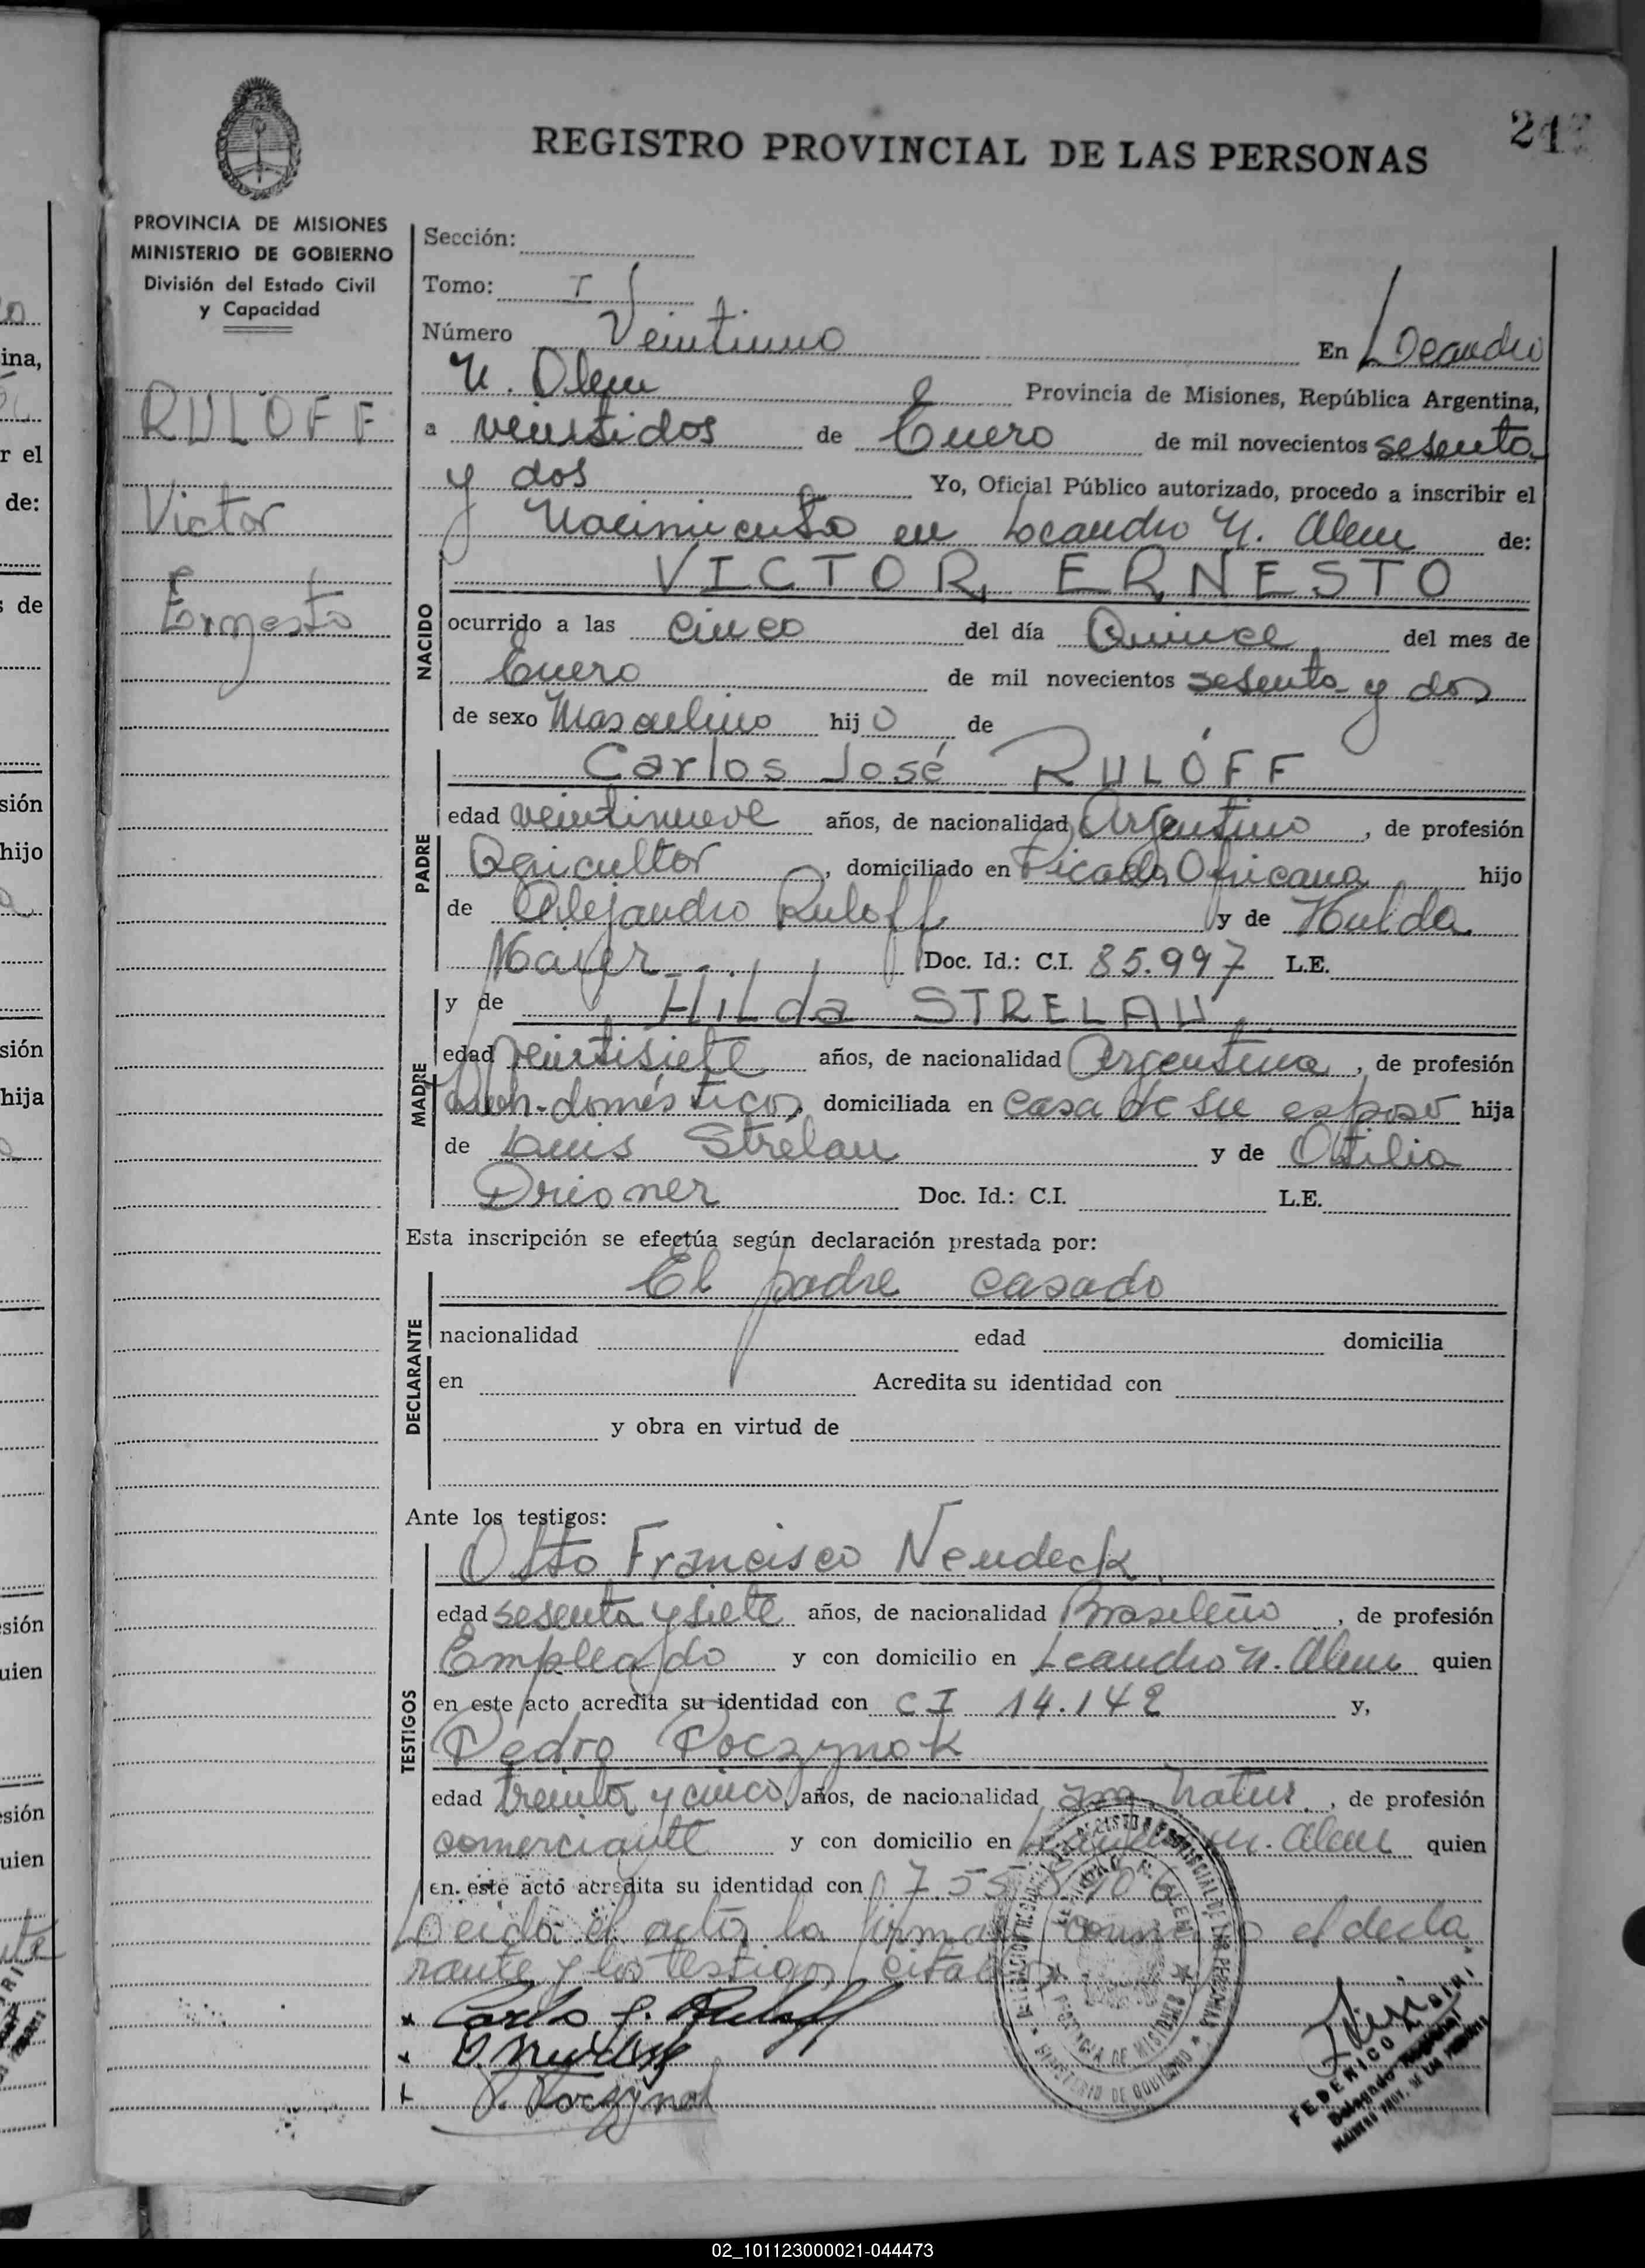 REGISTRO PROVINCIAL DE LAS PERSONAS
PROVINCIA DE MISIONES
MINISTERIO DE GOBIERNO
División del Estado Civil
y Capacidad
RULOFF
Victor
Ernesto
Sección:
Tomo: I
Número Veintiuno En Leandro
N. Alem Provincia de Misiones, República Argentina,
a veintidos de Enero de mil novecientos sesenta
y dos Yo, Oficial Público autorizado, procedo a inscribir el
Nacimiento en Leandro N. Alem de:
NACIDO
VICTOR ERNESTO
ocurrido a las cinco del día Quince del mes de
Enero de mil novecientos sesenta y dos
de sexo Masculino hijo de
PADRE
Carlos José RULOFF
edad veintinueve años, de nacionalidad Argentino, de profesión
Agricultor, domiciliado en Picada Africana hijo
de Alejandro Ruloff y de Hulda
Doc. Id.: C.I. 85.997 L.E.
MADRE
y de Hilda STRELAU
edad veintisiete años, de nacionalidad Argentina, de profesión
domésticos, domiciliada en casa de su esposo hija
de Luis Strelau y de Otilia
Doc. Id.: C.I. L.E.
Esta inscripción se efectúa según declaración prestada por:
DECLARANTE
El padre casado
nacionalidad edad domicilia
en Acredita su identidad con
y obra en virtud de
Ante los testigos:
TESTIGOS
Otto Francisco Neudeck
edad sesenta y siete años, de nacionalidad Brasileño, de profesión
Empleado y con domicilio en Leandro N. Alem quien
en este acto acredita su identidad con CI 14.142 y,
Pedro Poczynok
edad treinta y cinco años, de nacionalidad arg. natur., de profesión
comerciante y con domicilio en Leandro N. Alem quien
en este acto acredita su identidad con
Leida el acta, la firman conmigo el decla
rante y los testigos citados
Carlos J. Ruloff
P. Poczynok
FEDERICO
02_101123000021-044473